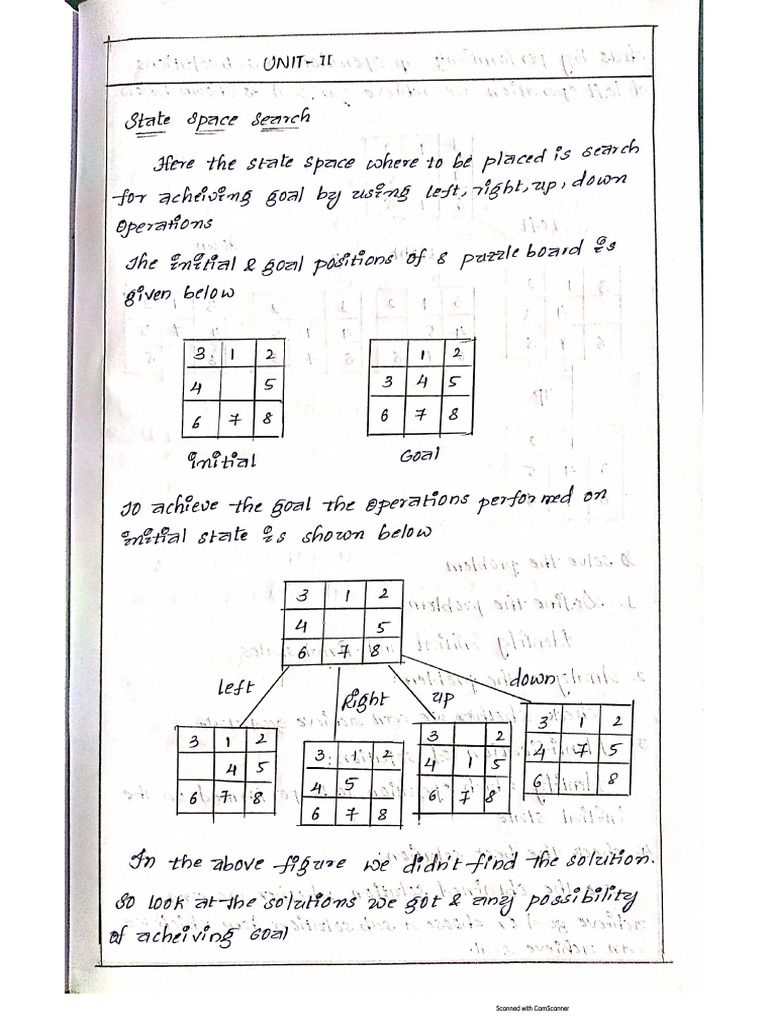 UNIT-II
State Space Search
Here the state space where to be placed is search
for acheiving goal by using left, right, up, down
operations
The initial & goal positions of 8 puzzle board is
given below
3 1 2
4 5
6 7 8
initial
1 2
3 4 5
6 7 8
Goal
To achieve the goal the operations performed on
initial state is shown below
3 1 2
4 5
6 7 8
left
Right
up
down
3 1 2
4 5
6 7 8
3 1 2
4 5
6 7 8
3 2
4 1 5
6 7 8
3 1 2
4 7 5
6 8
In the above figure we didn't find the solution.
So look at the solutions we got & any possibility
of acheiving Goal
Scanned with CamScanner